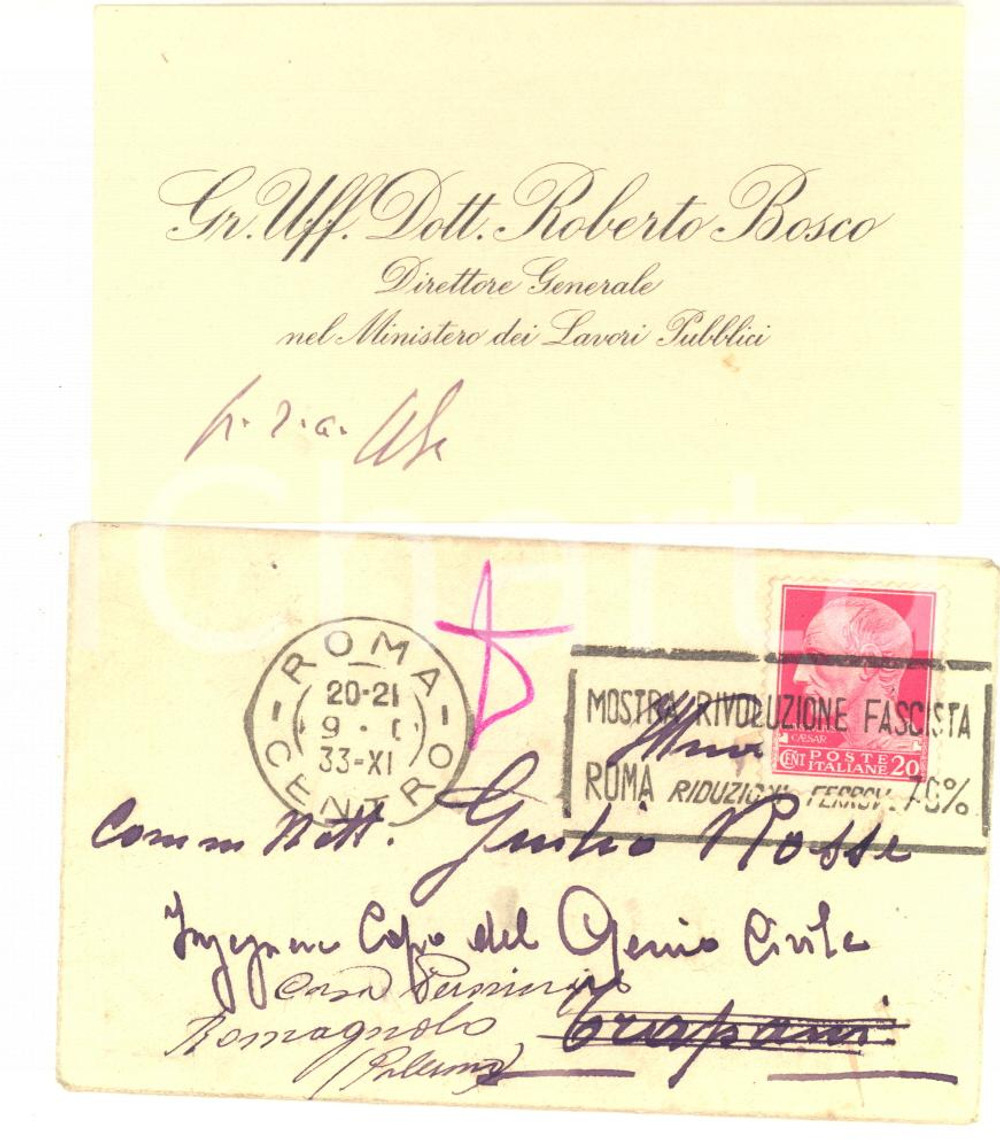 Gr. Uff. Dott. Roberto Bosco
Direttore Generale
nel Ministero dei Lavori Pubblici
p. r. a.
ROMA
20-21
9 · I
33-XI
CENTRO
MOSTRA RIVOLUZIONE FASCISTA
ROMA RIDUZIONI FERROV. 70%
CÆSAR
CENT POSTE ITALIANE 20
Comm Dott. Giulio Rosse
Ingegnere Capo del Genio Civile
Casa
Romagnolo Trapani
(Palermo)